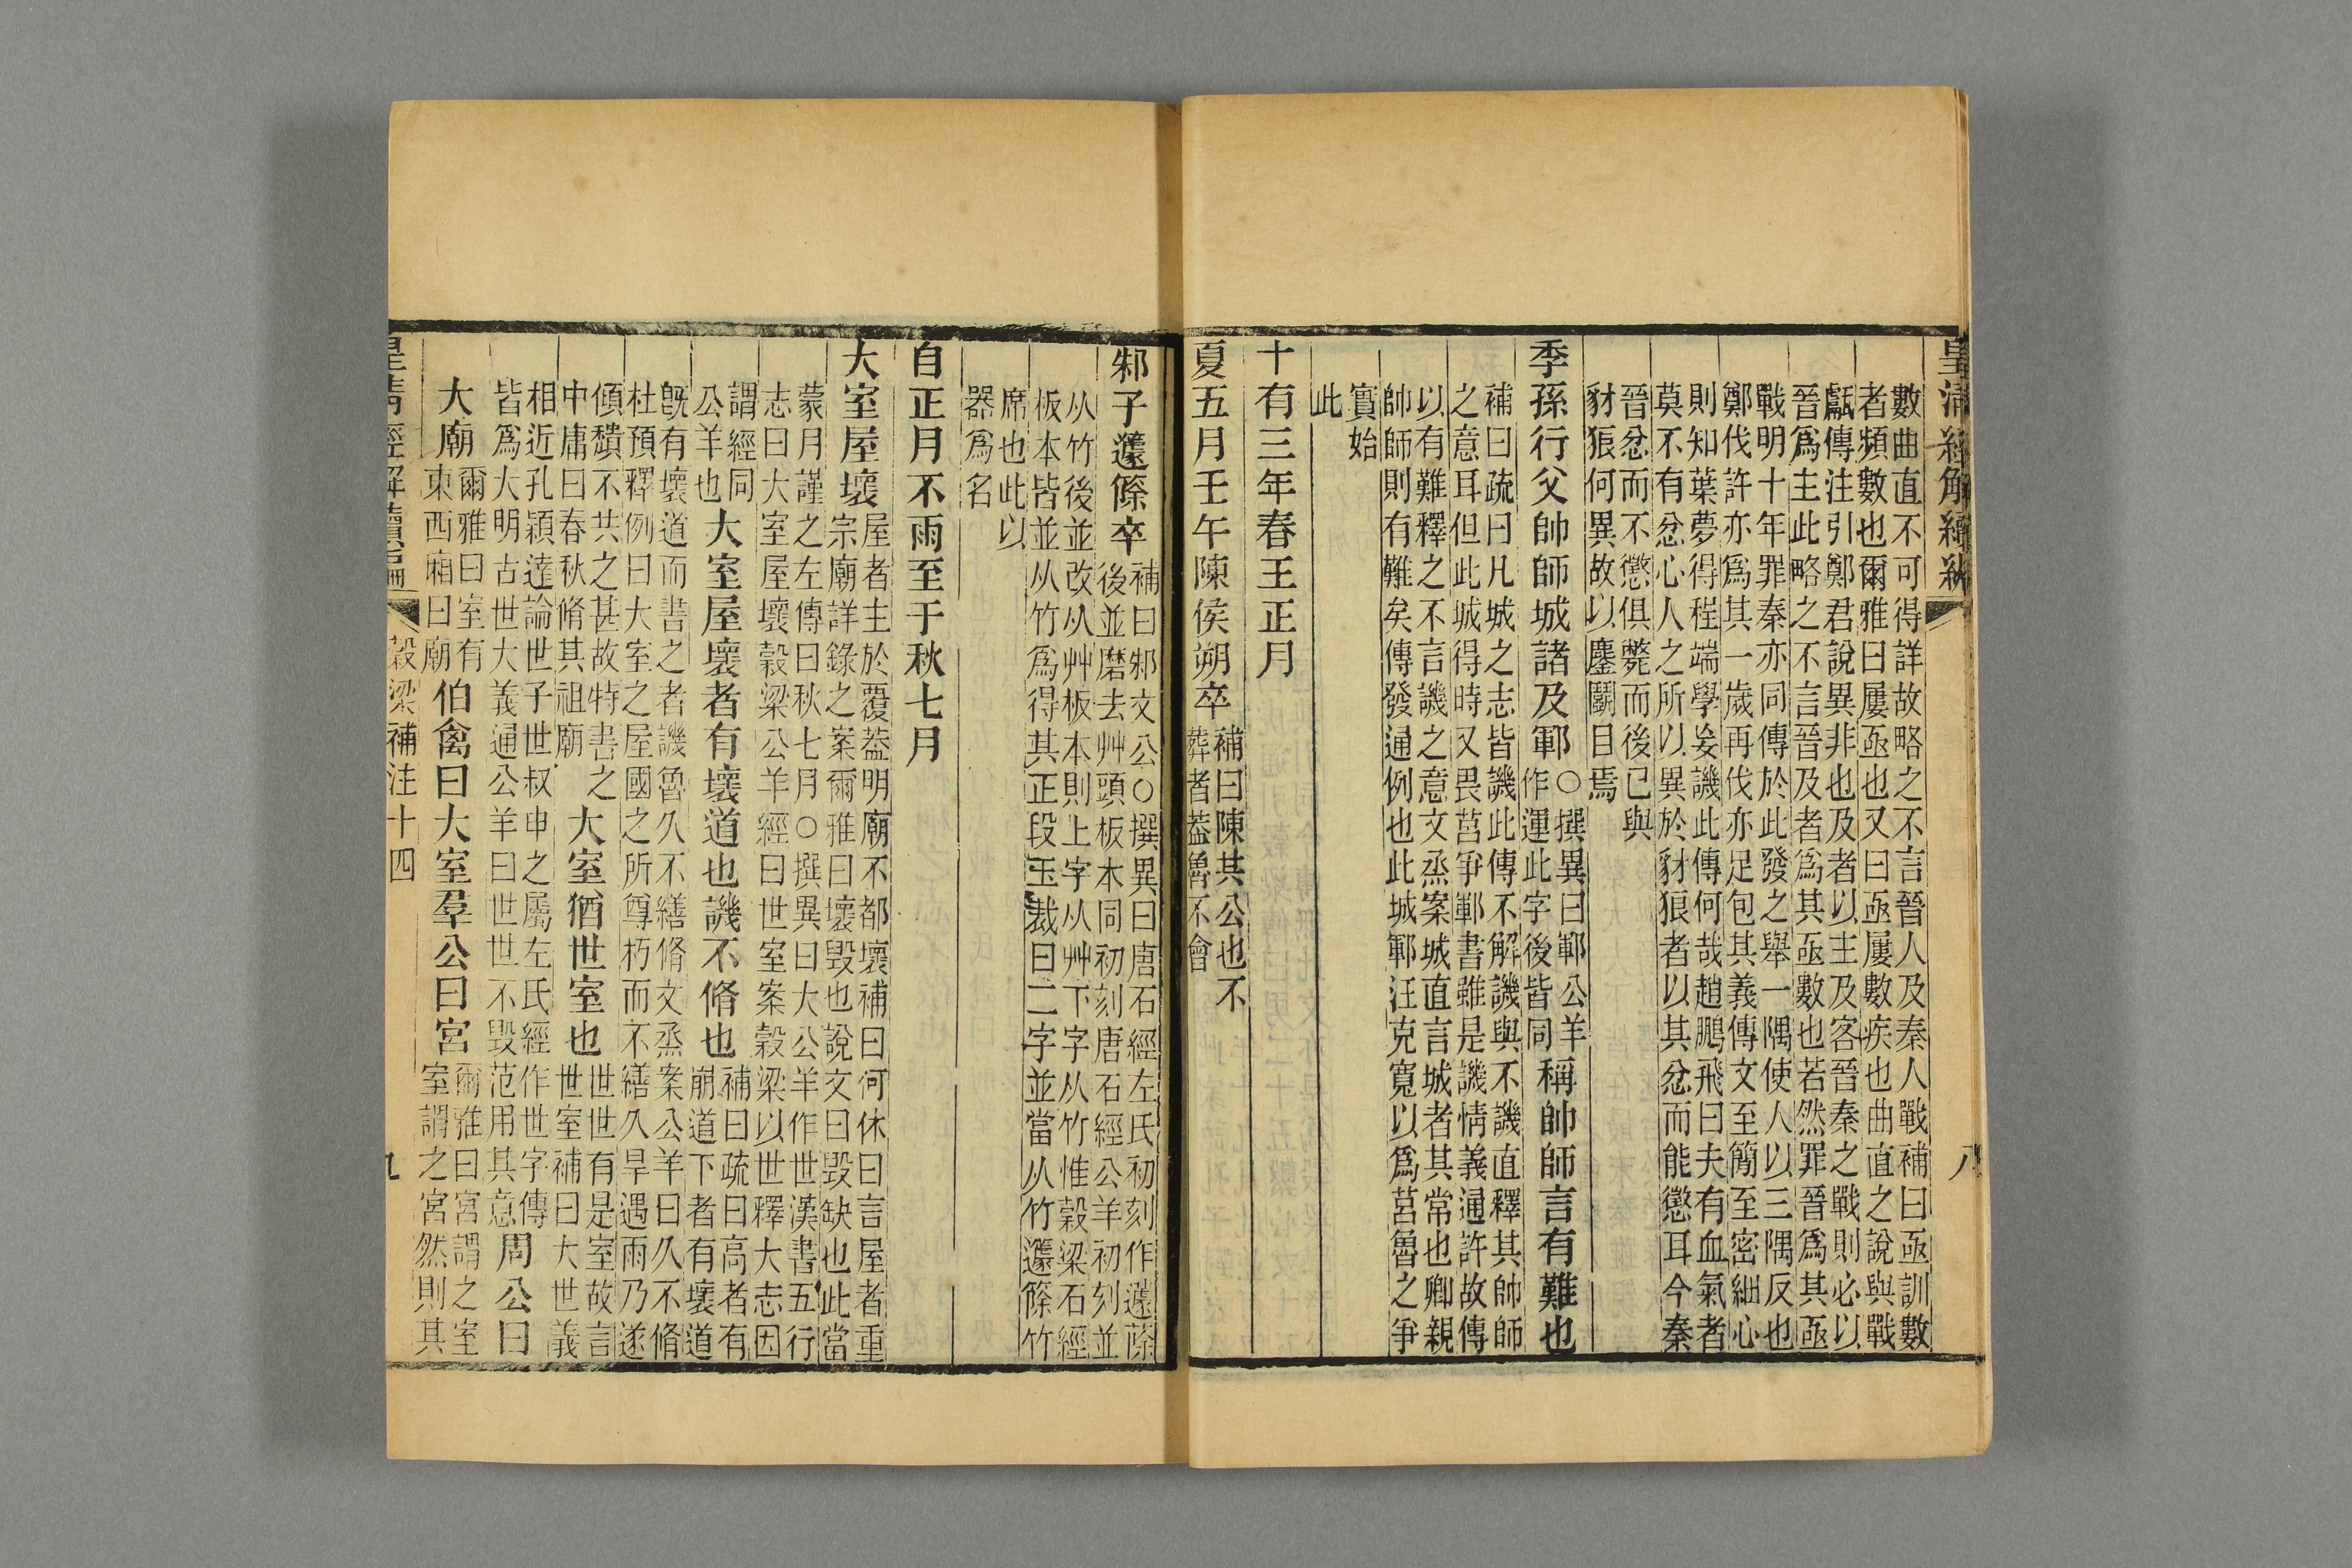 皇清經解續編
八
數曲直不可得詳故略之不言晉人及秦人戰補曰亟訓數
者頻數也爾雅曰屢亟也又曰亟屢數疾也曲直之說與戰
甗傳注引鄭君說異非也及者以主及客晉秦之戰則必以
晉爲主此略之不言晉及者爲其亟數也若然罪晉爲其亟
戰明十年罪秦亦同傳於此發之舉一隅使人以三隅反也
鄭伐許亦爲其一歲再伐亦足包其義傳文至簡至密細心
則知葉夢得程端學妄譏此傳何哉趙鵬飛曰夫有血氣者
莫不有忿心人之所以異於豺狼者以其忿而能懲耳今秦
晉忿而不懲俱斃而後已與
豺狼何異故以鏖鬭目焉
季孫行父帥師城諸及鄆
○撰異曰鄆公羊
作運此字後皆同
稱帥師言有難也
補曰疏曰凡城之志皆譏此傳不解譏與不譏直釋其帥師
之意耳但此城得時又畏莒爭鄆書雖是譏情義通許故傳
以有難釋之不言譏之意文烝案城直言城者其常也卿親
帥師則有難矣傳發通例也此城鄆汪克寬以爲莒魯之爭
實始
此
十有三年春王正月
夏五月壬午陳侯朔卒
補曰陳共公也不
葬者葢魯不會
邾子籧篨卒
補曰邾文公○撰異曰唐石經左氏初刻作蘧蒢
後並磨去艸頭板本同初刻唐石經公羊初刻並
从竹後並改从艸板本則上字从艸下字从竹惟穀梁石經
板本皆並从竹爲得其正段玉裁曰二字並當从竹籧篨竹
席也此以
器爲名
自正月不雨至于秋七月
大室屋壞
屋者主於覆葢明廟不都壞補曰何休曰言屋者重
宗廟詳錄之案爾雅曰壞毀也說文曰毀缺也此當
蒙月謹之左傳曰秋七月○撰異曰大公羊作世漢書五行
志曰大室屋壞穀梁公羊經曰世室案穀梁以世釋大志因
謂經同
公羊也
大室屋壞者有壞道也譏不脩也
補曰疏曰高者有
崩道下者有壞道
既有壞道而書之者譏魯久不繕脩文烝案公羊曰久不脩
杜預釋例曰大室之屋國之所尊朽而不繕久旱遇雨乃遂
傾穨不共之甚故特書之
中庸曰春秋脩其祖廟
大室猶世室也
世世有是室故言
世室補曰大世義
相近孔穎達論世子世叔申之屬左氏經作世字傳
皆爲大明古世大義通公羊曰世世不毀范用其意
周公曰
大廟
爾雅曰室有
東西廂曰廟
伯禽曰大室羣公曰宮
爾雅曰宮謂之室
室謂之宮然則其
皇清經解續編
穀梁補注十四
九